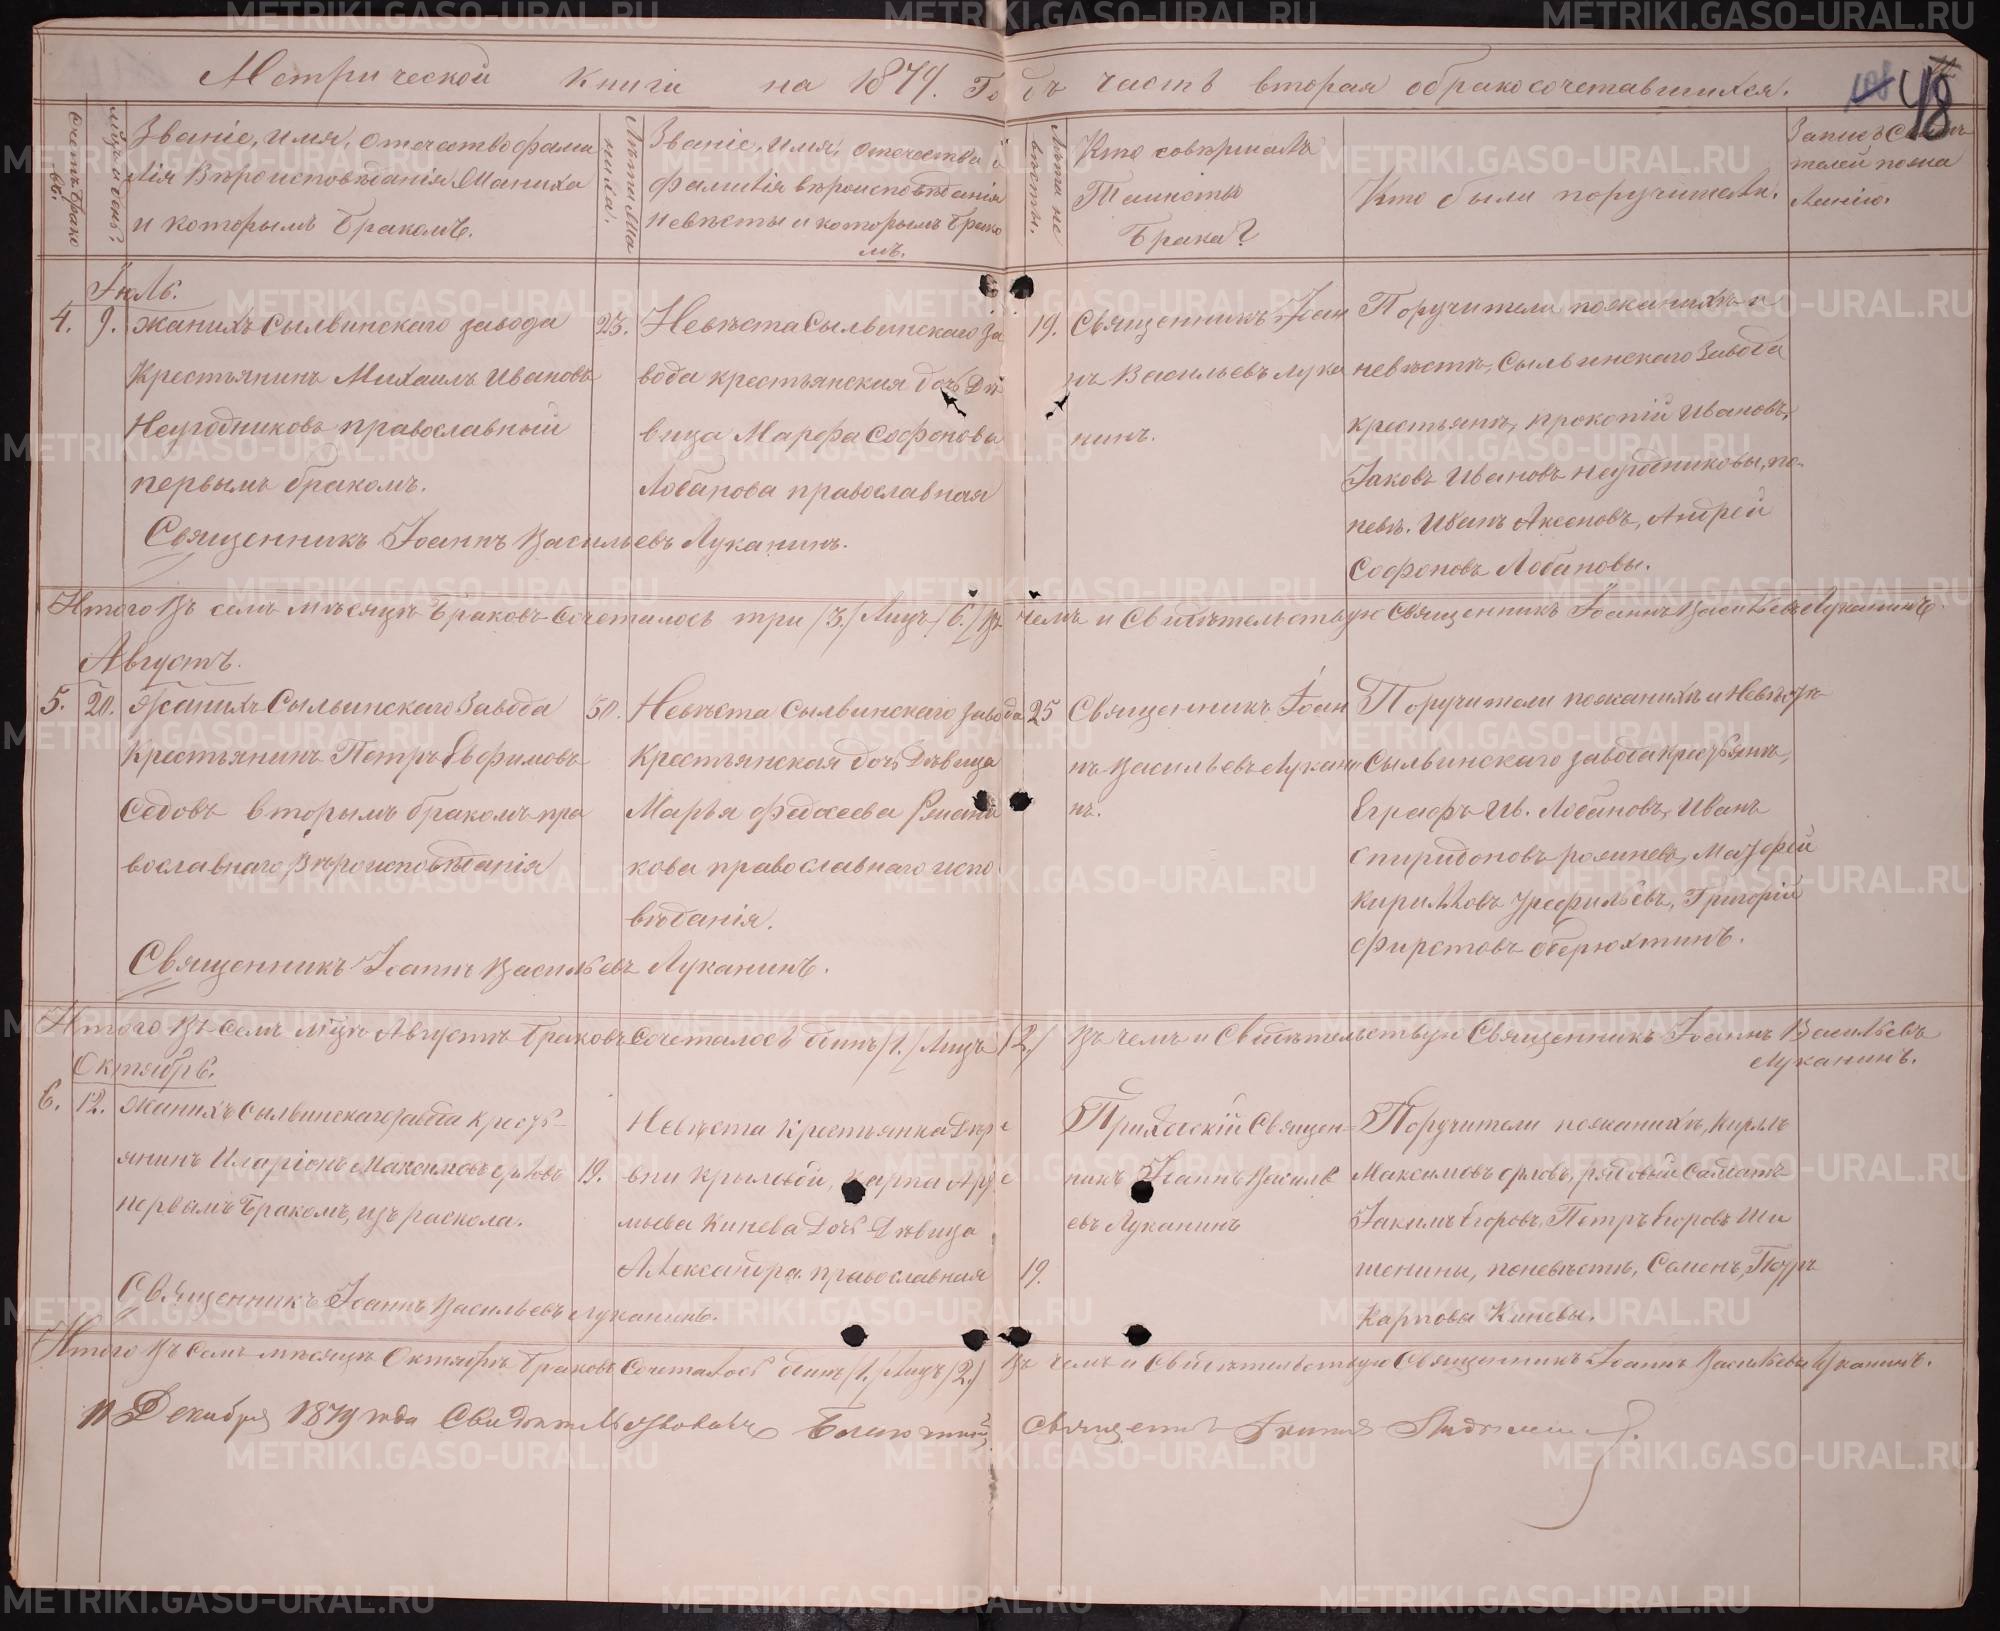 Метрической книги на 1879. Годъ часть вторая обракосочетавшихся.
48
Счетъ браковъ.
Мѣсяцъ и день?
Званіе, имя, отечество фами
лія Вѣроисповѣданія Жаниха
и которымъ бракомъ.
Лѣта Жа
ниха.
Званіе, имя, отечество и
фамилія вѣроисповѣданія
Невѣсты и которымъ брако
мъ.
Лѣта не
вѣсты.
Кто совершалъ
Таинство
Брака?
Кто были поручители.
Запись Свидѣ
телей по жела
Іюль.
4. 9. жанихъ Сылвинскаго завода
Крестьянинъ Михаилъ Ивановъ
Неугодниковъ православный
первымъ бракомъ.
23. Невѣста Сылвинскаго за
вода крестьянская дочь Дѣ
вица Марфа Софонова
Лобанова православная
19. Священникъ Іоан
нъ Васильевъ Лука
нинъ.
Поручители по жанихѣ и
невѣстѣ, Сылвинскаго Завода
крестьяне, прокопій Ивановъ,
Іаковъ Ивановъ неугодниковы, по
невѣ. Иванъ Аксеновъ, Андрей
Софоновъ Лобановы.
Священникъ Іоаннъ Васильевъ Луканинъ.
Итого Въ семъ мѣсяцѣ Браковъ Сочеталось три /3./ Лицъ /6./ Въ чемъ и Свидѣтельствую Священникъ Іоаннъ Васильевъ Луканинъ.
Августъ.
5. 20. Жанихъ Сылвинскаго Завода
Крестьянинъ Петръ Евфимовъ
Седовъ вторымъ бракомъ пра
вославнаго Вѣроисповѣданія
50. Невѣста Сылвинскаго завода
Крестьянская дочь Дѣвица
Марья Фадѣева
кова православнаго испо
вѣданія.
25 Священникъ Іоан
нъ Васильевъ Лукани
нъ.
Поручители по жанихѣ и Невѣстѣ
Сылвинскаго завода крестьяне,
Еграфъ Ив. Лобановъ, Иванъ
Спиридоновъ Матфей
Кириловъ Григорій
Фирстовъ Оберюхтинъ.
Священникъ Іоаннъ Васильевъ Луканинъ.
Итого Въ Семъ мѣцѣ Августѣ браковъ Сочеталось одинъ /1./ Лицъ /2./ Въ чемъ и Свидѣтельствую Священникъ Іоаннъ Васильевъ
Луканинъ.
Октябрь.
6. 12. Жанихъ Сылвинскаго завода Крестъ
янинъ Иларіонъ Максимовъ орловъ
первымъ Бракомъ, изъ раскола.
19.
Невѣста Крестьянка Дере
вни Крыловой, Карпа Арте
мьева Кинева Дочь Дѣвица
Александра православная
19.
Приходскій Священ
никъ Іоаннъ Василь
евъ Луканинъ
Поручители по жанихѣ, Кирлъ
Максимовъ орловъ, рядовый Салдатъ
Іакимъ Егоровъ, Петръ Егоровъ Ши
шенины, по невѣстѣ, Семенъ, Петръ
Карпова Киневы.
Священникъ Іоаннъ Васильевъ Луканинъ.
Итого Въ Семъ мѣсяцѣ Октябрѣ браковъ Сочеталось одинъ /1./ Лицъ /2./ Въ чемъ и Свидѣтельствую Священникъ Іоаннъ Васильевъ Луканинъ.
11 Декабря 1879 года Свидѣтельствовалъ Благочинный Священникъ